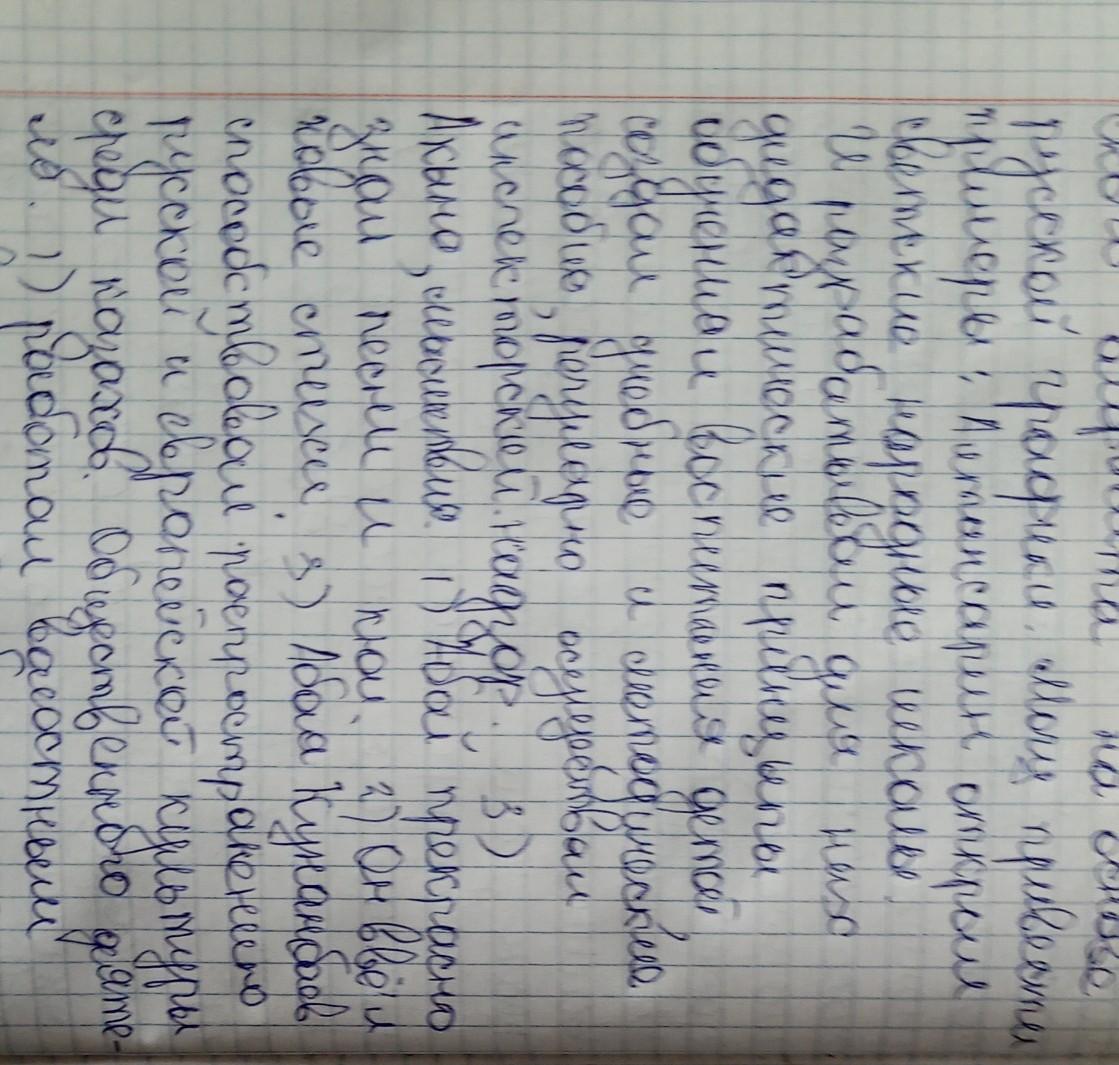 на основе
русской графики. Могу привести
примеры: Алтынсарин открыл
светские народные школы.
И разрабатывал для них
дидактические принципы
обучения и воспитания детей,
создал учебные и методические
пособия, регулярно осуществлял
инспекторский надзор. 3)
Акыно, 1) Абай прекрасно
знал песни и кюи. 2) Он ввёл
новые стихи. 3) Абай Кунанбаев
способствовал распространению
русской и европейской культуры
среди казахов. Общественного деяте-
ля. 1) работал волостным